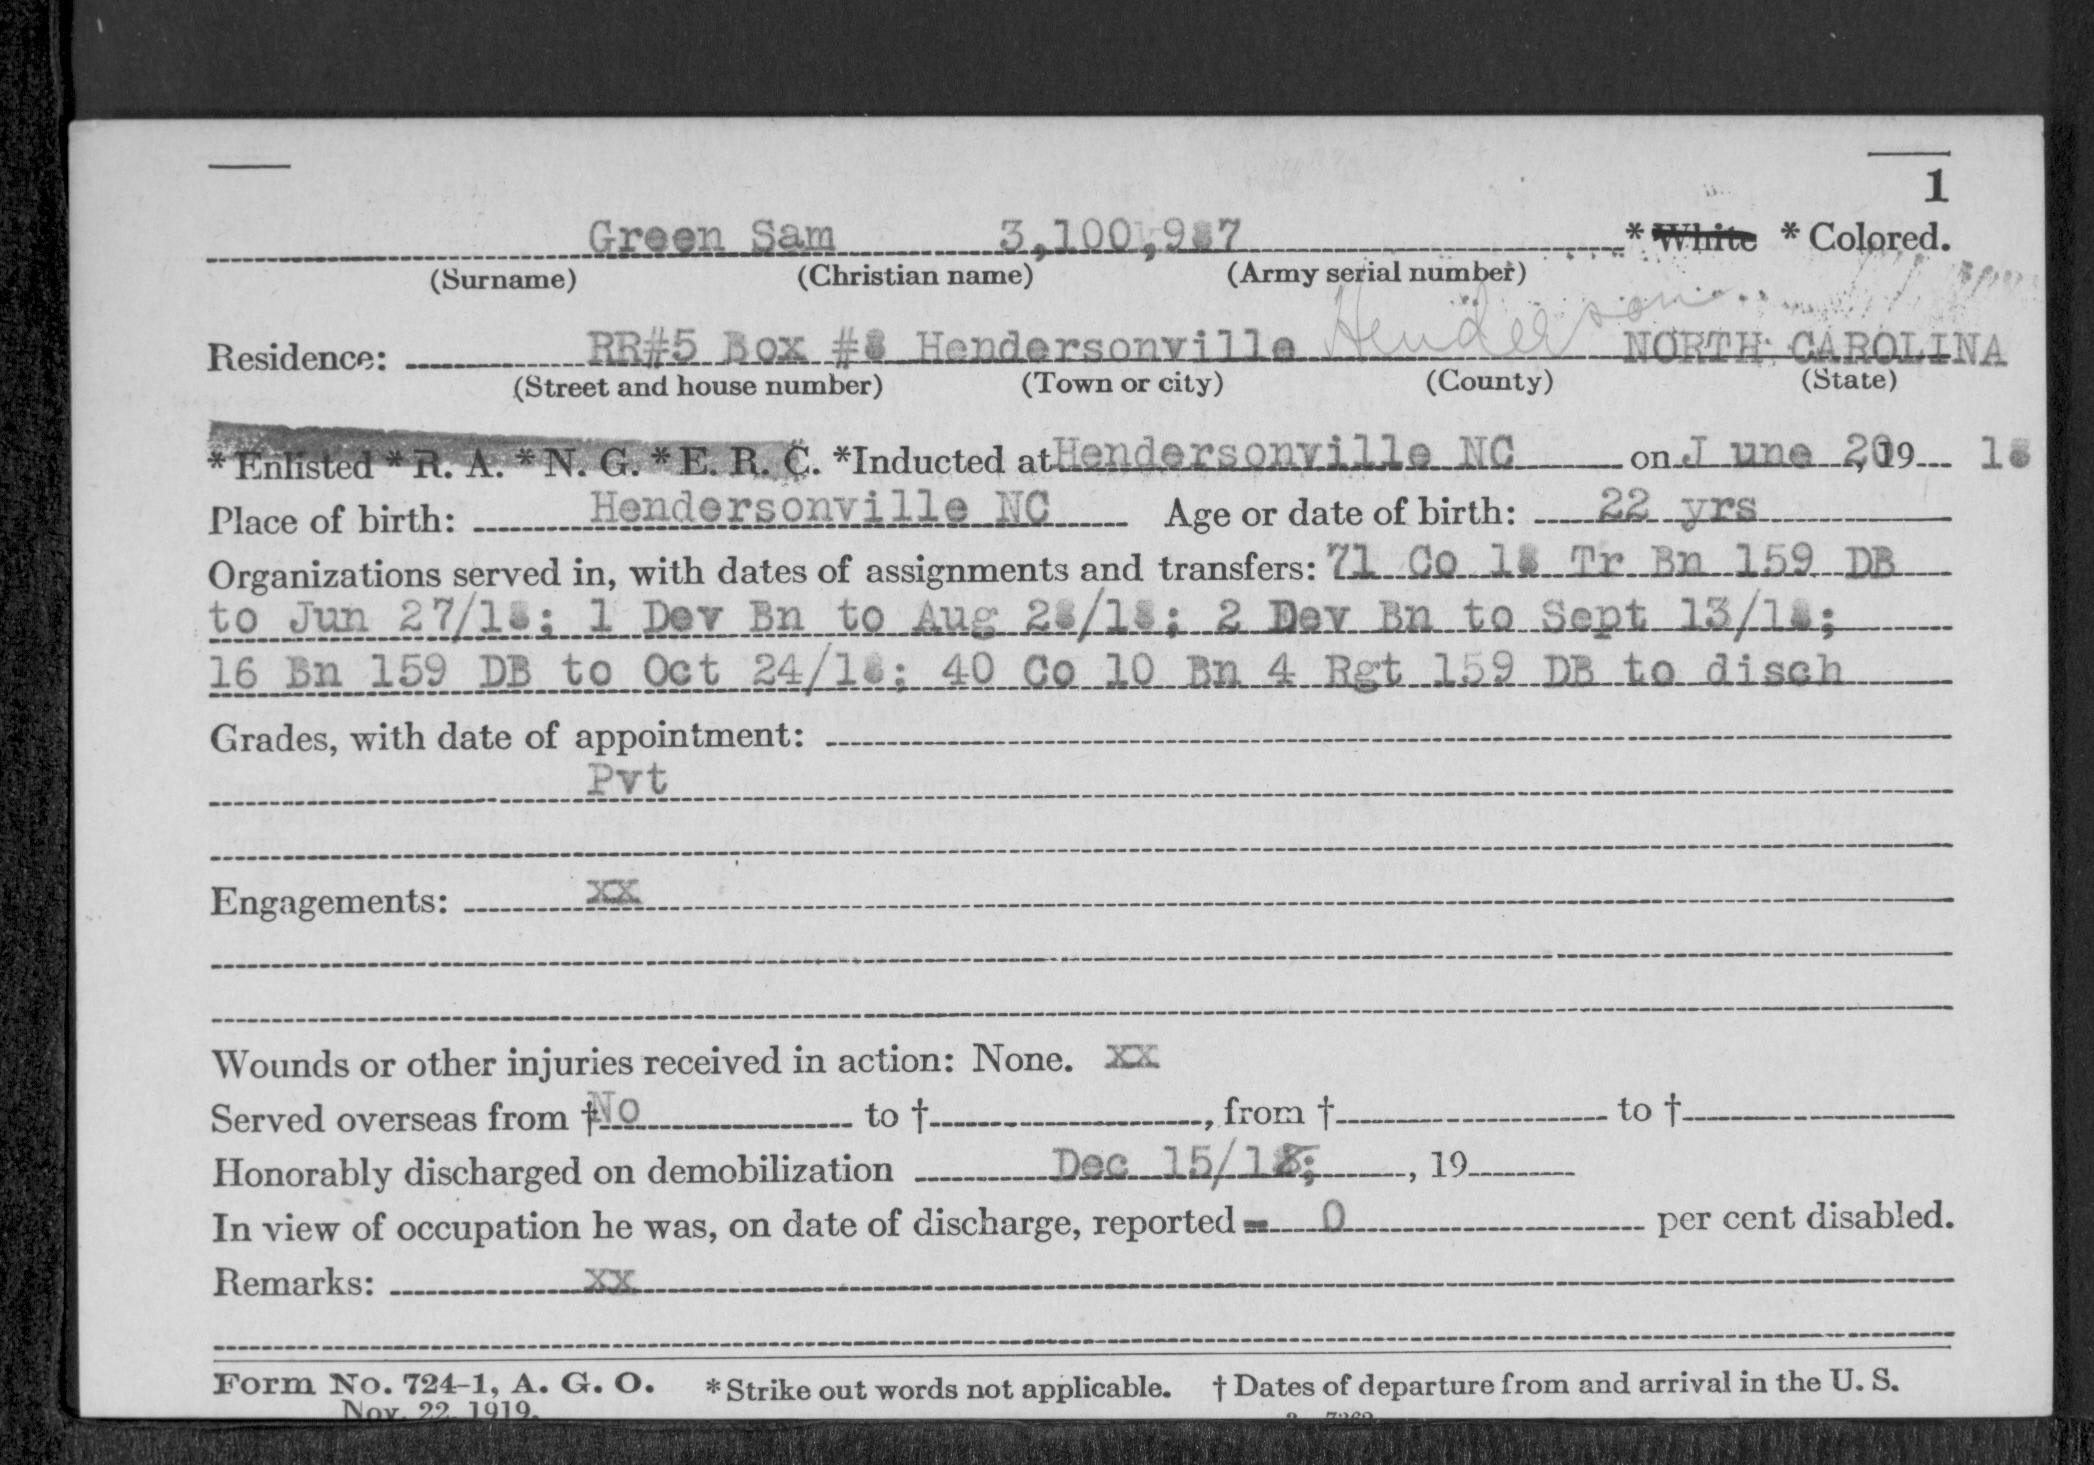 1
Green Sam 3,100,987 * White * Colored.
(Surname) (Christian name) (Army serial number)
Residence: RR#5 Box #8 Hendersonville Henderson NORTH CAROLINA
(Street and house number) (Town or city) (County) (State)
* Enlisted * R. A. * N. G. * E. R. C. *Inducted at Hendersonville NC on J une 20, 19 18
Place of birth: Hendersonville NC Age or date of birth: 22 yrs
Organizations served in, with dates of assignments and transfers: 71 Co 18 Tr Bn 159 DB
to Jun 27/18; 1 Dev Bn to Aug 28/18; 2 Dev Bn to Sept 13/18;
16 Bn 159 DB to Oct 24/18; 40 Co 10 Bn 4 Rgt 159 DB to disch
Grades, with date of appointment:
Pvt
Engagements: xx
Wounds or other injuries received in action: None. xx
Served overseas from † No to †, from † to †
Honorably discharged on demobilization Dec 15/18; , 19
In view of occupation he was, on date of discharge, reported 0 per cent disabled.
Remarks: xx
Form No. 724-1, A. G. O. *Strike out words not applicable. † Dates of departure from and arrival in the U. S.
Nov. 22, 1919.